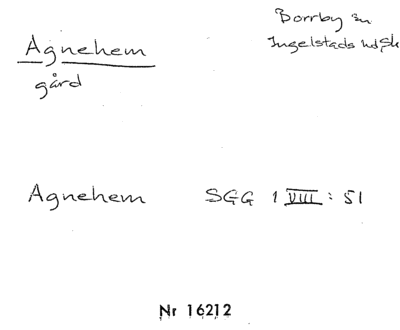 Borrby sn
Ingelstads hd, Sk
Agnehem
gård
Agnehem SGG 1 VIII: 51
Nr 16212